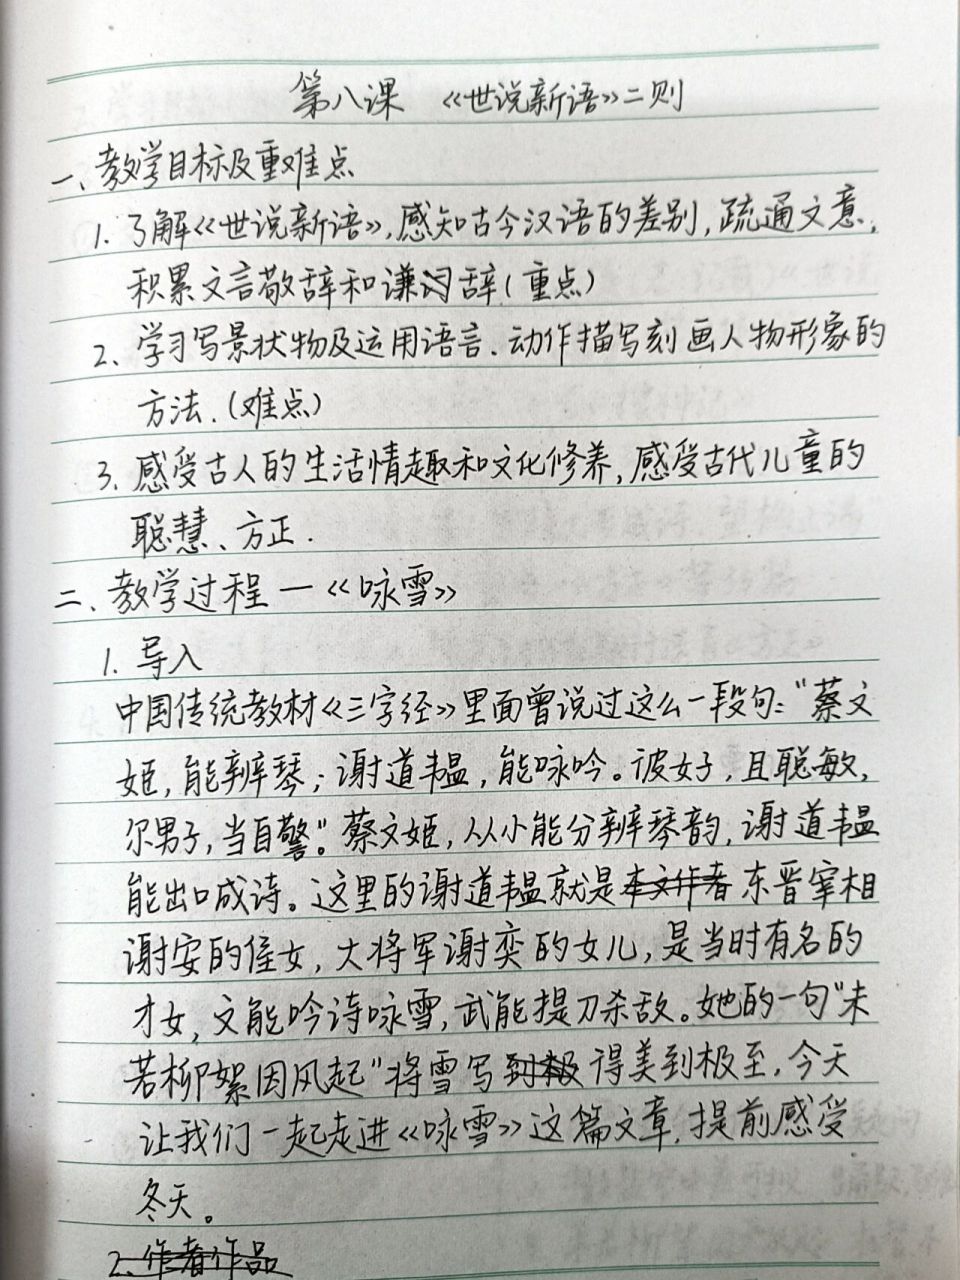 第八课 《世说新语》二则
一、教学目标及重难点
1. 了解《世说新语》,感知古今汉语的差别,疏通文意,
积累文言敬辞和谦词辞(重点)
2、学习写景状物及运用语言、动作描写刻画人物形象的
方法.(难点)
3、感受古人的生活情趣和文化修养,感受古代儿童的
聪慧、方正.
二、教学过程 — 《咏雪》
1. 导入
中国传统教材《三字经》里面曾说过这么一段句:"蔡文
姬,能辨琴;谢道韫,能咏吟。彼女子,且聪敏,
尔男子,当自警"。蔡文姬,从小能分辨琴韵,谢道韫
能出口成诗。这里的谢道韫就是本文作者东晋宰相
谢安的侄女,大将军谢奕的女儿,是当时有名的
才女,文能吟诗咏雪,武能提刀杀敌。她的一句"未
若柳絮因风起"将雪写到极得美到极至,今天
让我们一起走进《咏雪》这篇文章,提前感受
冬天。
2、作者作品